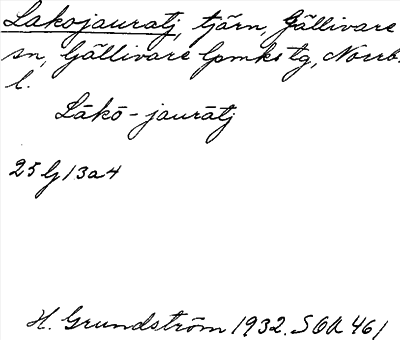 Lakojauratj, tjärn, Gällivare
sn, Gällivare lpmks tg, Norrb.
l.
Lākō-jaurātj
25 G 13a4
H. Grundström 1932. SOA 461